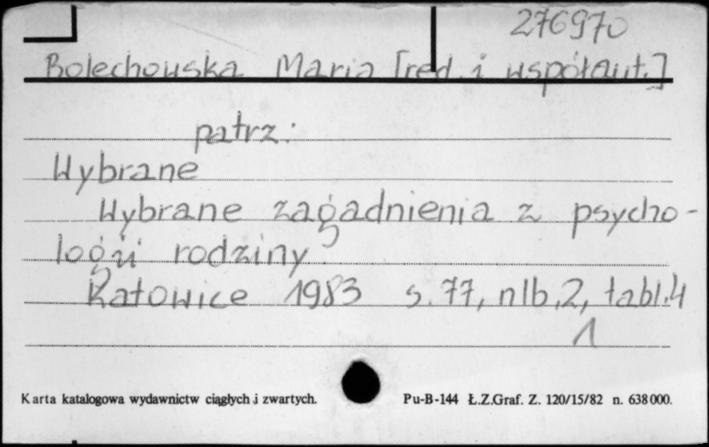 276970
Bolechowska Maria [red. i współaut.]
patrz:
Wybrane
Wybrane zagadnienia z psycho-
logii rodziny.
Katowice 1983 s. 77, nlb. 2, tabl. 4
1
Karta katalogowa wydawnictw ciągłych i zwartych. Pu-B-144 Ł.Z.Graf. Z. 120/15/82 n. 638 000.